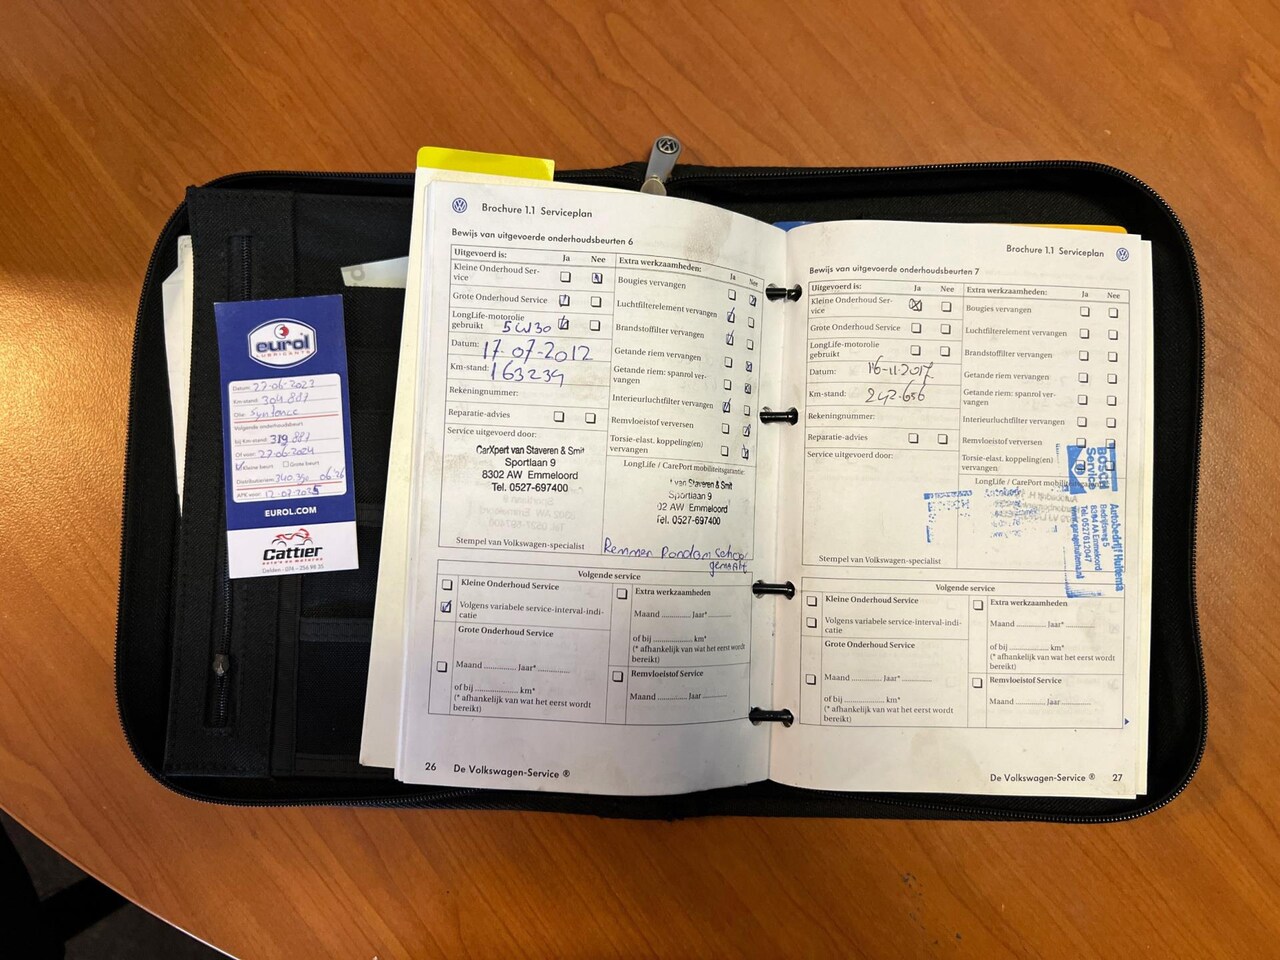 eurol
LUBRICANTS
Datum: 27-06-2023
Km-stand: 304.887
Olie: Syntence
Volgende onderhoudsbeurt
bij Km-stand: 319.887
Of voor: 27-06-2024
Kleine beurt Grote beurt
Distributieriem: 340.350 06-26
APK voor: 12-07-2025
EUROL.COM
Cattier
auto's en motoren
Delden - 074 - 256 98 35
Brochure 1.1 Serviceplan
Bewijs van uitgevoerde onderhoudsbeurten 6
Uitgevoerd is: Ja Nee
Kleine Onderhoud Ser-
vice
Grote Onderhoud Service
LongLife-motorolie
gebruikt 5W30
Datum: 17-07-2012
Km-stand: 163239
Rekeningnummer:
Reparatie-advies
Service uitgevoerd door:
CarXpert van Staveren & Smit
Sportlaan 9
8302 AW Emmeloord
Tel. 0527-697400
Stempel van Volkswagen-specialist
Extra werkzaamheden: Ja Nee
Bougies vervangen
Luchtfilterelement vervangen
Brandstoffilter vervangen
Getande riem vervangen
Getande riem: spanrol ver-
vangen
Interieurluchtfilter vervangen
Remvloeistof verversen
Torsie-elast. koppeling(en)
vervangen
LongLife / CarePort mobiliteitsgarantie
van Staveren & Smit
Sportlaan 9
02 AW Emmeloord
Tel. 0527-697400
Remmen Rondom schoon
gemaakt
Volgende service
Kleine Onderhoud Service
Volgens variabele service-interval-indi-
catie
Grote Onderhoud Service
Maand Jaar*
of bij km*
(* afhankelijk van wat het eerst wordt
bereikt)
Extra werkzaamheden
Maand Jaar*
of bij km*
(* afhankelijk van wat het eerst wordt
bereikt)
Remvloeistof Service
Maand Jaar
26 De Volkswagen-Service ®
Brochure 1.1 Serviceplan
Bewijs van uitgevoerde onderhoudsbeurten 7
Uitgevoerd is: Ja Nee
Kleine Onderhoud Ser-
vice
Grote Onderhoud Service
LongLife-motorolie
gebruikt
Datum: 16-11-2017
Km-stand: 242.656
Rekeningnummer:
Reparatie-advies
Service uitgevoerd door:
Stempel van Volkswagen-specialist
Extra werkzaamheden: Ja Nee
Bougies vervangen
Luchtfilterelement vervangen
Brandstoffilter vervangen
Getande riem vervangen
Getande riem: spanrol ver-
vangen
Interieurluchtfilter vervangen
Remvloeistof verversen
Torsie-elast. koppeling(en)
vervangen
LongLife / CarePort
BOSCH
Service
Autobedrijf Huitema
Bedrijfsweg 5
8304 AA Emmeloord
Tel. 0527612047
www.garagehuitema.nl
Volgende service
Kleine Onderhoud Service
Volgens variabele service-interval-indi-
catie
Grote Onderhoud Service
Maand Jaar*
of bij km*
(* afhankelijk van wat het eerst wordt
bereikt)
Extra werkzaamheden
Maand Jaar*
of bij km*
(* afhankelijk van wat het eerst wordt
bereikt)
Remvloeistof Service
Maand Jaar
De Volkswagen-Service ® 27